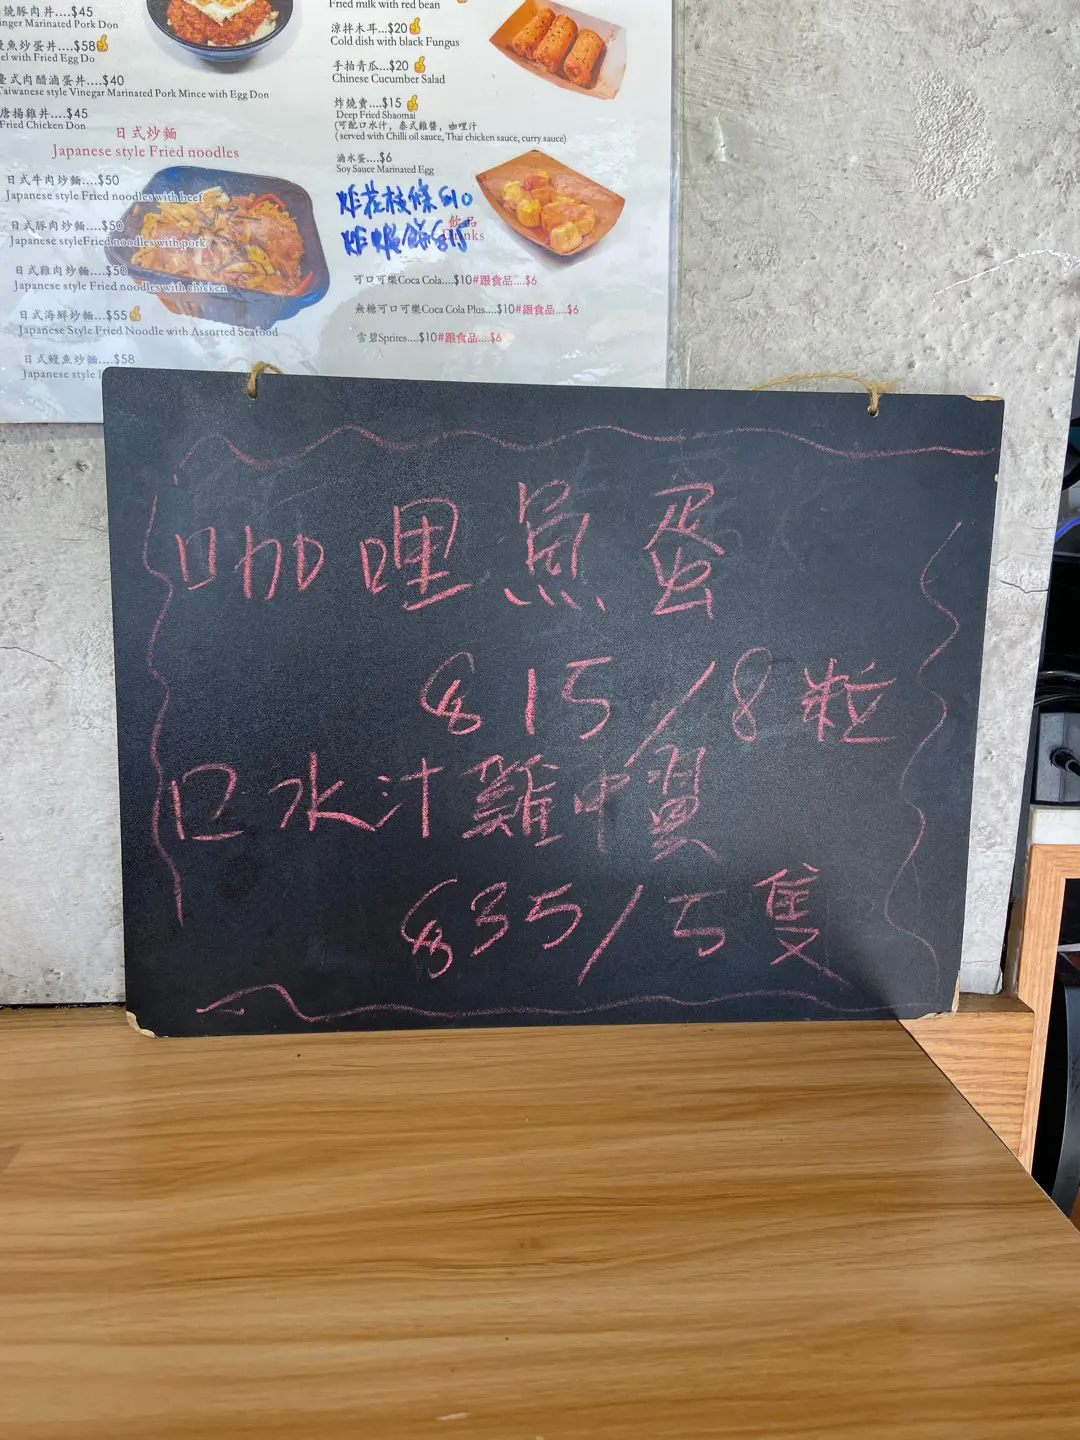 燒豚肉丼....$45
inger Marinated Pork Don
魚炒蛋丼....$58
el with Fried Egg Do
臺式肉醋滷蛋丼....$40
Taiwanese style Vinegar Marinated Pork Mince with Egg Don
唐揚雞丼....$45
Fried Chicken Don
日式炒麵
Japanese style Fried noodles
日式牛肉炒麵....$50
Japanese style Fried noodles with beef
日式豚肉炒麵....$50
Japanese styleFried noodles with pork
日式雞肉炒麵....$50
Japanese style Fried noodles with chicken
日式海鮮炒麵....$55
Japanese Style Fried Noodle with Assorted Seafood
日式鰻魚炒麵....$58
Japanese style
Fried milk with red bean
涼拌木耳...$20
Cold dish with black Fungus
手拍青瓜....$20
Chinese Cucumber Salad
炸燒賣....$15
Deep Fried Shaomai
(可配口水汁，泰式雞醬，咖哩汁
( served with Chilli oil sauce, Thai chicken sauce, curry sauce)
滷水蛋....$6
Soy Sauce Marinated Egg
炸花枝條$10
炸蝦餅$15
飲品
Drinks
可口可樂Coca Cola....$10#跟食品....$6
無糖可口可樂Coca Cola Plus....$10#跟食品....$6
雪碧Sprites....$10#跟食品....$6
咖哩魚蛋
$15/8粒
口水汁雞中翼
$35/5隻